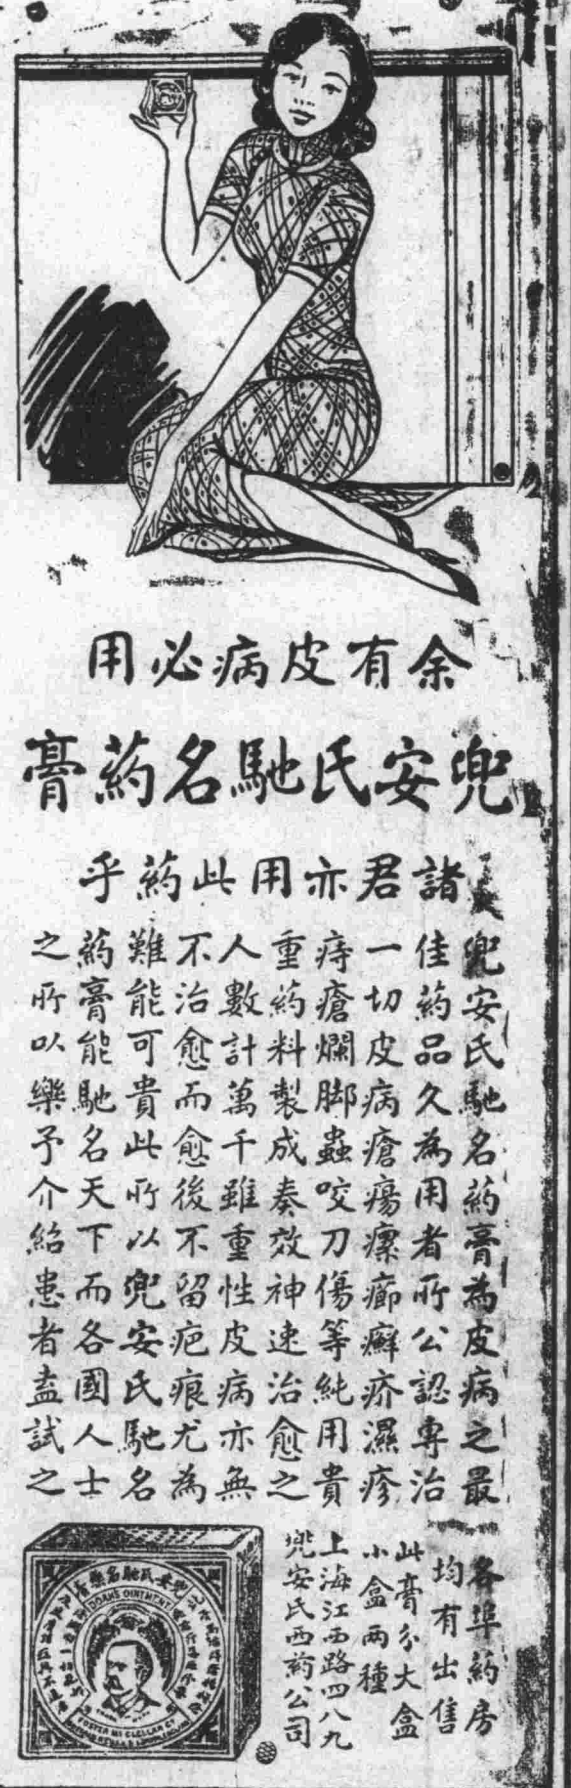 余有皮病必用
兜安氏馳名葯膏
諸君亦用此葯乎
兜安氏馳名葯膏為皮病之最
佳葯品久為用者所公認專治
一切皮病瘡瘍瘰癤癬疥濕疹
痔瘡爛脚蟲咬刀傷等純用貴
重葯料製成奏效神速治愈之
人數計萬千雖重性皮病亦無
不治愈而愈後不留疤痕尤為
難能可貴此所以兜安氏馳名
葯膏能馳名天下而各國人士
之所以樂予介紹患者盍試之
各埠葯房
均有出售
此膏分大盒
小盒兩種
上海江西路四八九
兜安氏西葯公司
DOAN'S OINTMENT
FOSTER McCLELLAN Co